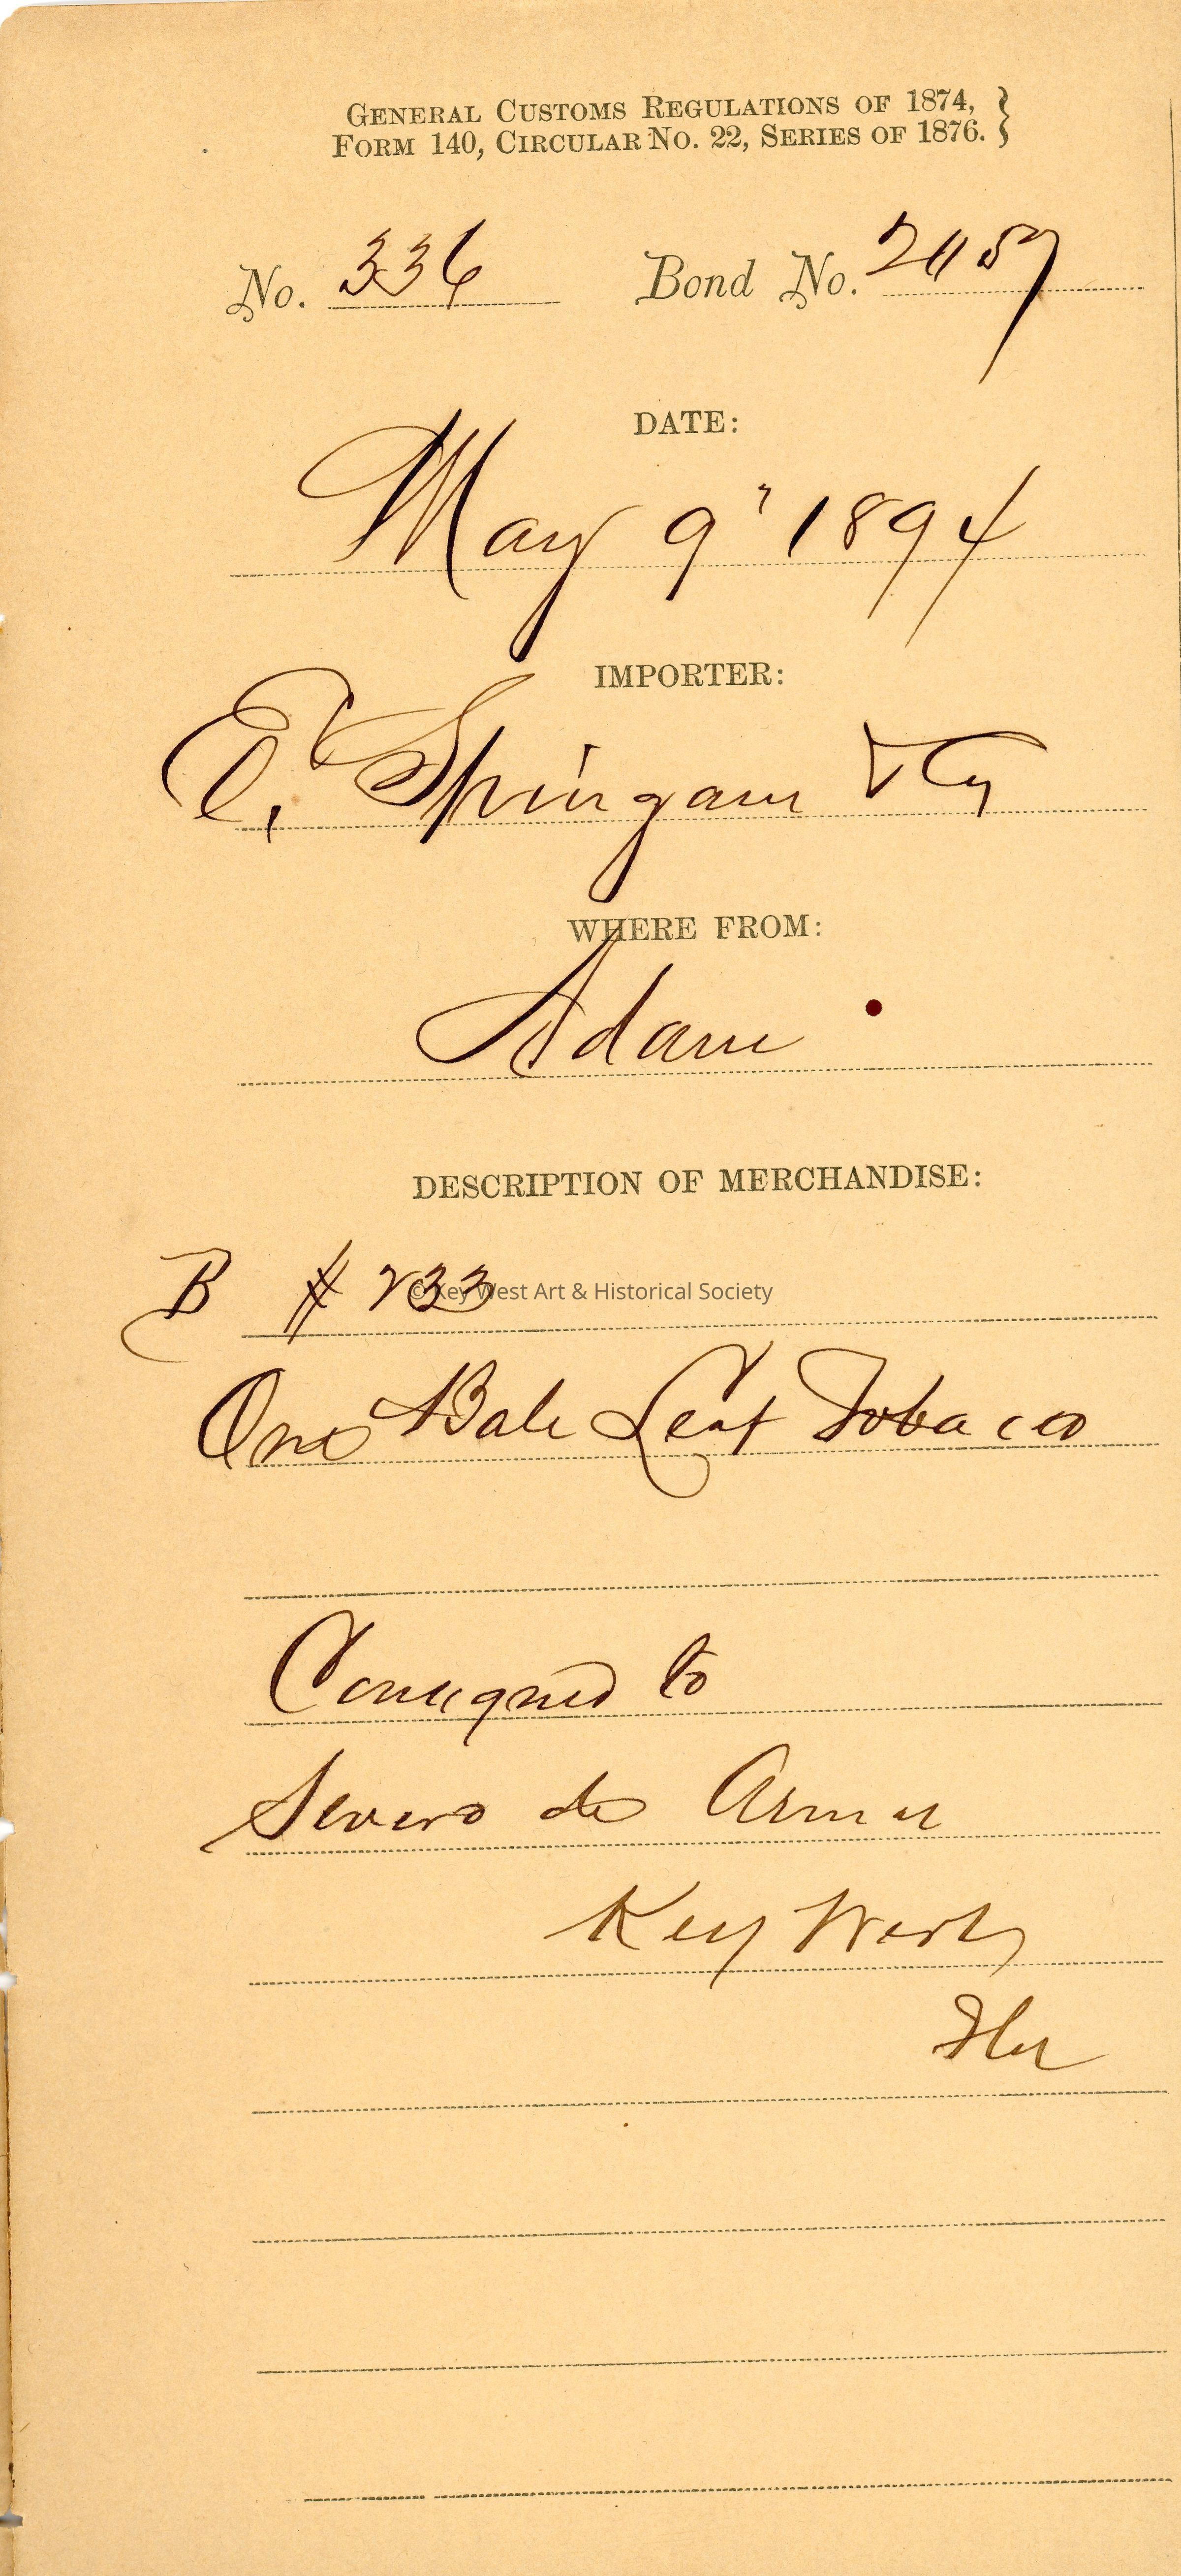 GENERAL CUSTOMS REGULATIONS OF 1874, }
FORM 140, CIRCULAR NO. 22, SERIES OF 1876. }
No. 336 Bond No. 21157
DATE:
May 9" 1894
IMPORTER:
E. Spingarn & Cy
WHERE FROM:
Adam
DESCRIPTION OF MERCHANDISE:
B # 233
© Key West Art & Historical Society
One Bale Leaf Tobacco
Consigned to
Severo de Armas
Key West
Fla